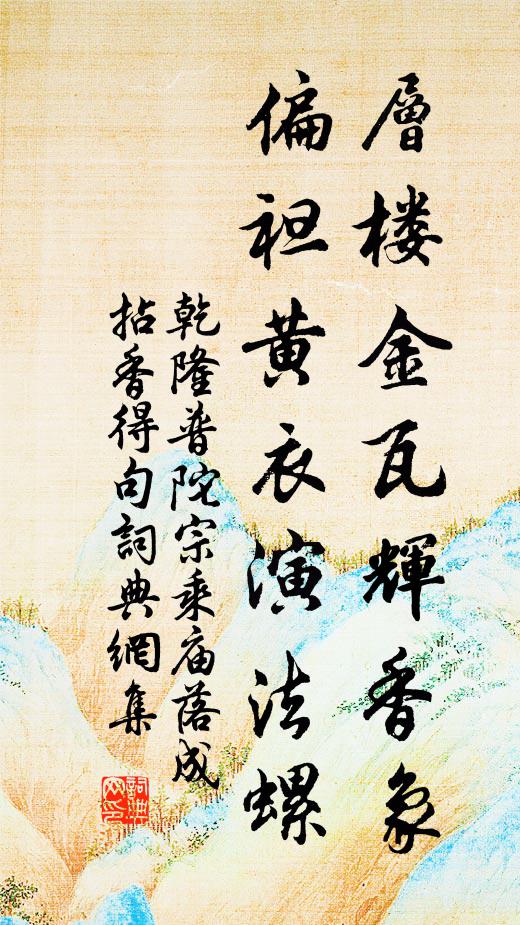 層楼金瓦輝香象
偏袒黃衣演法螺
乾隆普陀宗乘庙落成
拈香得句詞典網集
詞典網印